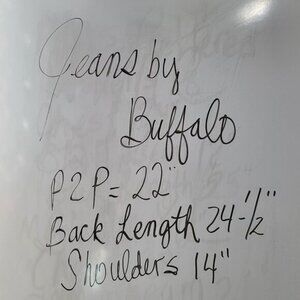 Jeans by
Buffalo
P2P= 22"
Back Length 24-1/2"
Shoulders 14"